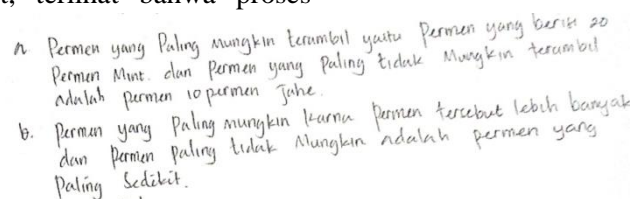 t, terlihat bahwa proses
a. Permen yang Paling mungkin terambil yaitu Permen yang berisi 20
Permen Mint. dan Permen yang Paling tidak Mungkin terambil
adalah permen 10 permen Jahe.
b. Permen yang Paling mungkin karna Permen tersebut lebih banyak
dan Permen Paling tidak Mungkin adalah permen yang
Paling Sedikit.